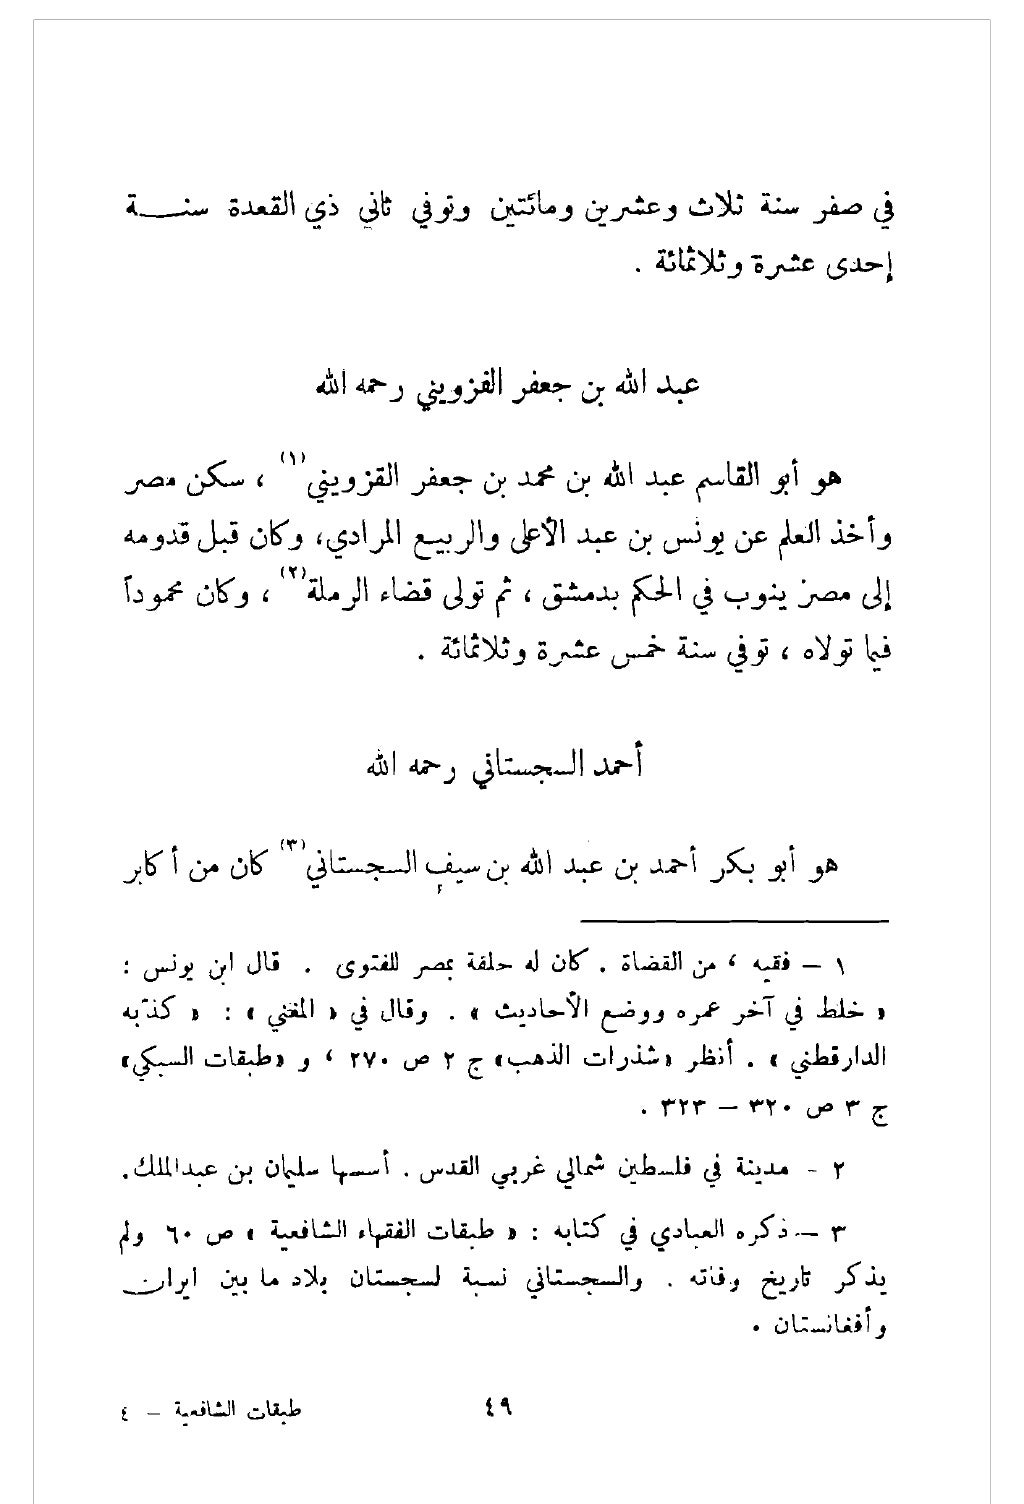 في صفر سنة ثلاث وعشرين ومائتين وتوفي ثاني ذي القعدة سنــة
إحدى عشرة وثلاثمائة .
عبد الله بن جعفر القزويني رحمه الله
هو أبو القاسم عبد الله بن محمد بن جعفر القزويني(١) ، سكن مصر
وأخذ العلم عن يونس بن عبد الأعلى والربيع المرادي، وكان قبل قدومه
إلى مصر ينوب في الحكم بدمشق ، ثم تولى قضاء الرملة(٢) ، وكان محموداً
فيما تولاه ، توفي سنة خمس عشرة وثلاثمائة .
أحمد السجستاني رحمه الله
هو أبو بكر أحمد بن عبد الله بن سيف السجستاني(٣) كان من أكابر
١ – فقيه ، من القضاة . كان له حلقة بمصر للفتوى . قال ابن يونس :
« خلط في آخر عمره ووضع الأحاديث » . وقال في « المغني » : « كذبه
الدارقطني » . أنظر «شذرات الذهب» ج ٢ ص ٢٧٠ ، و «طبقات السبكي»
ج ٣ ص ٣٢٠ – ٣٢٣ .
٢ - مدينة في فلسطين شمالي غربي القدس . أسسها سليمان بن عبدالملك.
٣ – ذكره العبادي في كتابه : « طبقات الفقهاء الشافعية » ص ٦٠ ولم
يذكر تاريخ وفاته . والسجستاني نسبة لسجستان بلاد ما بين ايران
وأفغانستان .
٤٩
طبقات الشافعية – ٤